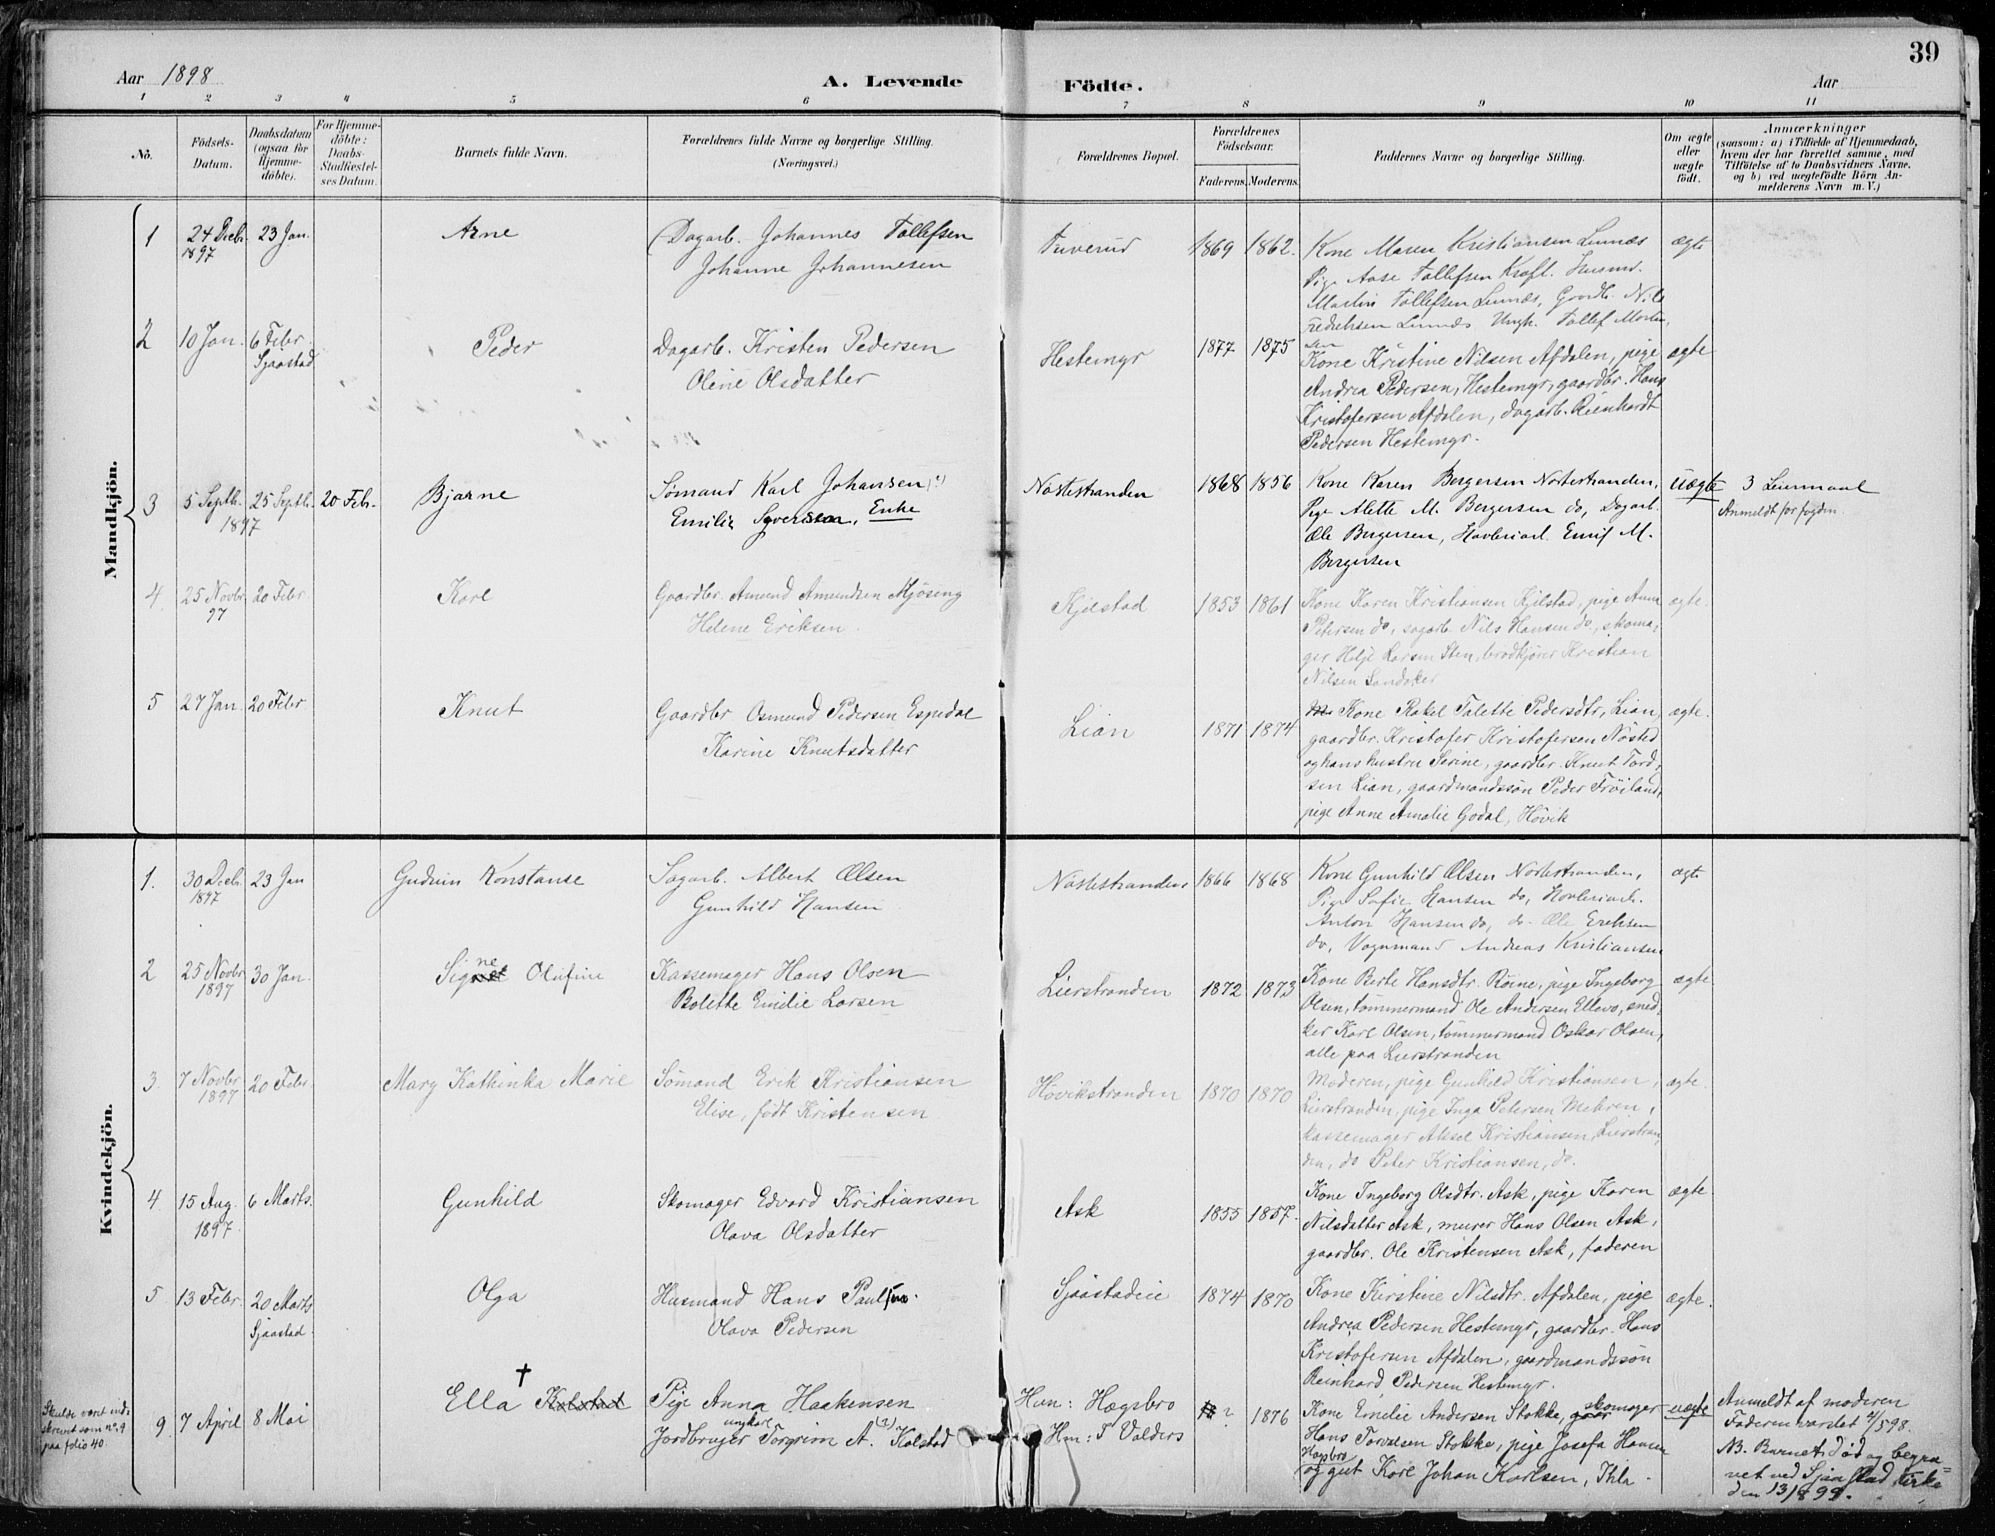 39
Aar 1898
A. Levende Födte.
Aar
1 2 3 4 5 6 7 8 9 10 11
No.
Födsels-
Datum.
Daabsdatum
(ogsaa for
Hjemme-
döbte).
For Hjemme-
döbte:
Daabs-
Stadfæstel-
ses Datum.
Barnets fulde Navn.
Forældrenes fulde Navne og borgerlige Stilling.
(Næringsvei.)
Forældrenes Bopæl.
Forældrenes
Födselsaar.
Faderens. Moderens.
Faddernes Navne og borgerlige Stilling.
Om ægte
eller
uægte
födt.
Anmærkninger
(saasom: a) i Tilfælde af Hjemmedaab,
hvem der har forrettet samme, med
Tilföielse af to Daabsvidners Navne,
og b) ved uægtefödte Börn An-
melderens Navn m. V.)
Mandkjön.
1 24 Decb. 23 Jan. Arne
1897
Dagarb. Johannes Tollefsen
Johanne Johannesen
Tuverud 1869 1862.
Kone Maren Kristiansen Linnæs
Pige Aase Tollefsen Kraft. Husmd.
Martin Tollefsen Linnæs, Gaardb. Nils
Fredriksen Linnæs Ungk. Tollef Morten-
sen
ægte
2 10 Jan. 6 Febr. Peder
Sjaastad
Dagarb. Kristen Pedersen
Oline Olsdatter
Hestemyr 1877 1875
Kone Kristine Nilsen Afdalen, pige
Andrea Pedersen, Hestemyr, gaardbr. Hans
Kristofersen Afdalen, dagarb. Reinhardt
Pedersen Hestemyr.
ægte
3 5 Septb. 25 Septb. 20 Febr. Bjarne
1897
Sømand Karl Johansen
Emilie Syversen, Enke
Nøstestranden 1868 1856
Kone Karen Bergersen Nøstestranden,
Pige Alette M. Bergersen do, Dagarb.
Ole Bergersen, Høvleriarb. Emil M.
Bergersen
uægte 3 Leiermaal
Anmeldt for fogden
4. 25 Novbr. 20 Febr. Karl
97
Gaardbr. Amund Amundsen Mjøsing
Helene Eriksen.
Kjelstad 1853 1861
Kone Karen Kristiansen Kjelstad, pige Anna
Petersen do, sagarb. Nils Hansen do, skoma-
ger Helje Larsen Sten, brødkjører Kristian
Nilsen Sandaker
ægte.
5 27 Jan. 20 Febr Knut
Gaardbr Osmund Pedersen Espedal
Karine Knutsdatter
Lian 1871 1874
Kone Rakel Talette Pedersdtr, Lian,
gaardbr. Kristofer Kristofersen Nøsted
og hans hustru Serine, gaardbr. Knut Tord-
sen Lian, gaardmandssøn Peder Frøiland,
pige Anne Amalie Godal, Høvik
ægte.
Kvindekjön.
1. 30 Decb. 23 Jan Gudrun Konstanse
1897
Sagarb. Albert Olsen
Gunhild Hansen
Nøstestranden 1866 1868
Kone Gunhild Olsen Nøstestranden,
Pige Sofie Hansen do, Høvleriarb.
Anton Hansen do, do Ole Eriksen
do, Vognmand Andreas Kristiansen
ægte
2 25 Novbr 30 Jan. Signe Olufine
1897
Kassemager Hans Olsen
Bolette Emilie Larsen
Lierstranden 1872 1873
Kone Berte Hansdtr. Røine, pige Ingeborg
Olsen, tømmermand Ole Andersen Ellevo, sned-
ker Karl Olsen, tømmermand Oskar Olsen,
alle paa Lierstranden
ægte.
3. 7 Novbr. 20 Febr. Mary Kathinka Marie
1897
Sømand Erik Kristiansen
Elise, født Kristensen.
Høvikstranden 1870 1870
Moderen, pige Gunhild Kristiansen,
Lierstranden, pige Inga Petersen Mehren,
kassemager Aksel Kristiansen, Lierstran-
den, do Peter Kristiansen, do.
ægte.
4. 15 Aug. 6 Marts. Gunhild
1897.
Skomager Edvard Kristiansen
Olava Olsdatter
Ask 1855 1857.
Kone Ingeborg Olsdtr. Ask, pige Karen
Nilsdatter Ask, murer Hans Olsen Ask,
gaardbr. Ole Kristensen Ask, faderen
ægte.
5 13 Febr. 20 Marts Olga
Sjaastad.
Husmand Hans Paulsen.
Olava Pedersen
Sjaastadeie 1874 1870
Kone Kirstine Nilsdtr. Afdalen, pige
Andrea Pedersen Hestemyr, gaardbr. Hans
Kristofersen Afdalen, gaardmandssøn
Reinhard Pedersen Hestemyr.
ægte.
Skulde været ind-
skrevet som no. 9
paa folio 40.
9. 7 April 8 Mai Ella † Kolstad
Pige Anna Haakensen
ungkarl
Jordbruger Torgrim A. (?) Kolstad
Hun: Hægsbro
Hm: I Valders
? 1876
Kone Emelie Andersen Stokke, skomager
Hans Torvalsen Stokke, pige Josefa Hansen
Hægsbro
og gut Karl Johan Karlsen, Ihle.
uægte
Anmeldt af moderen
Faderen varslet 4/5 98.
NB. Barnet død og begra-
vet ved Sjaastad kirke
den 13/8 99.